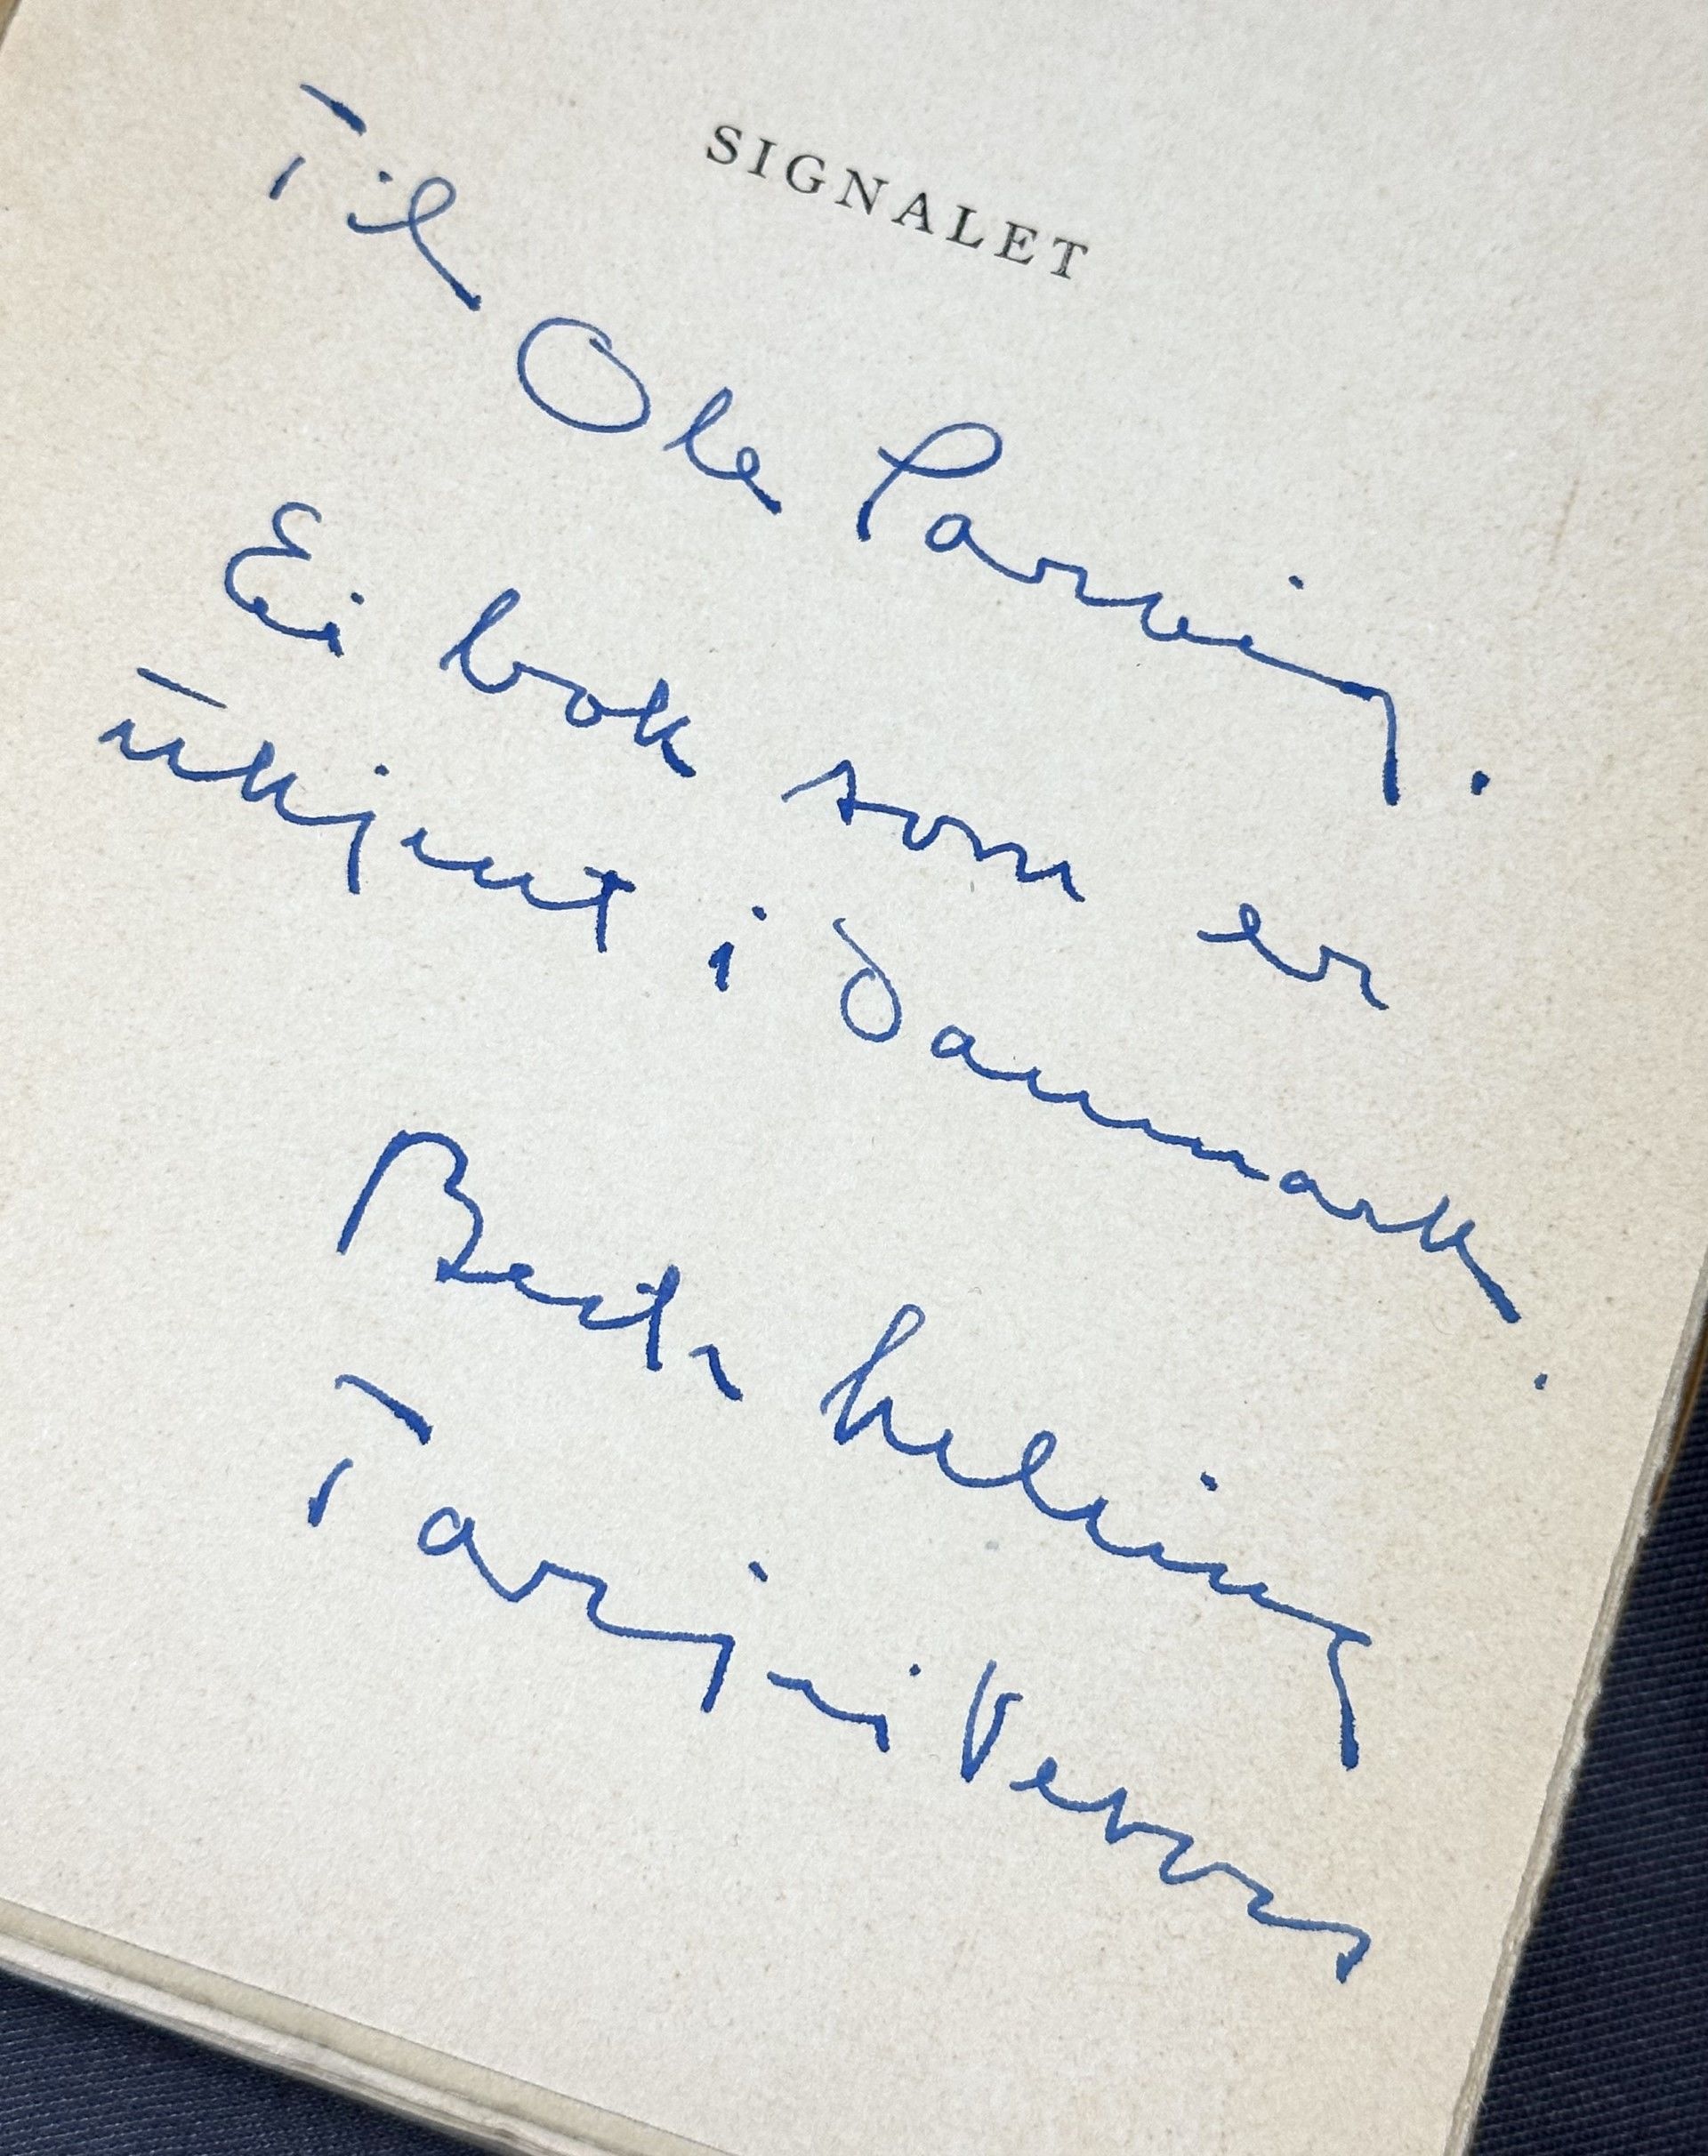 SIGNALET
Til Ole Sarvig.
Ei bok som er
ukjent i Danmark.
Beste helsing
Tarjei Vesaas